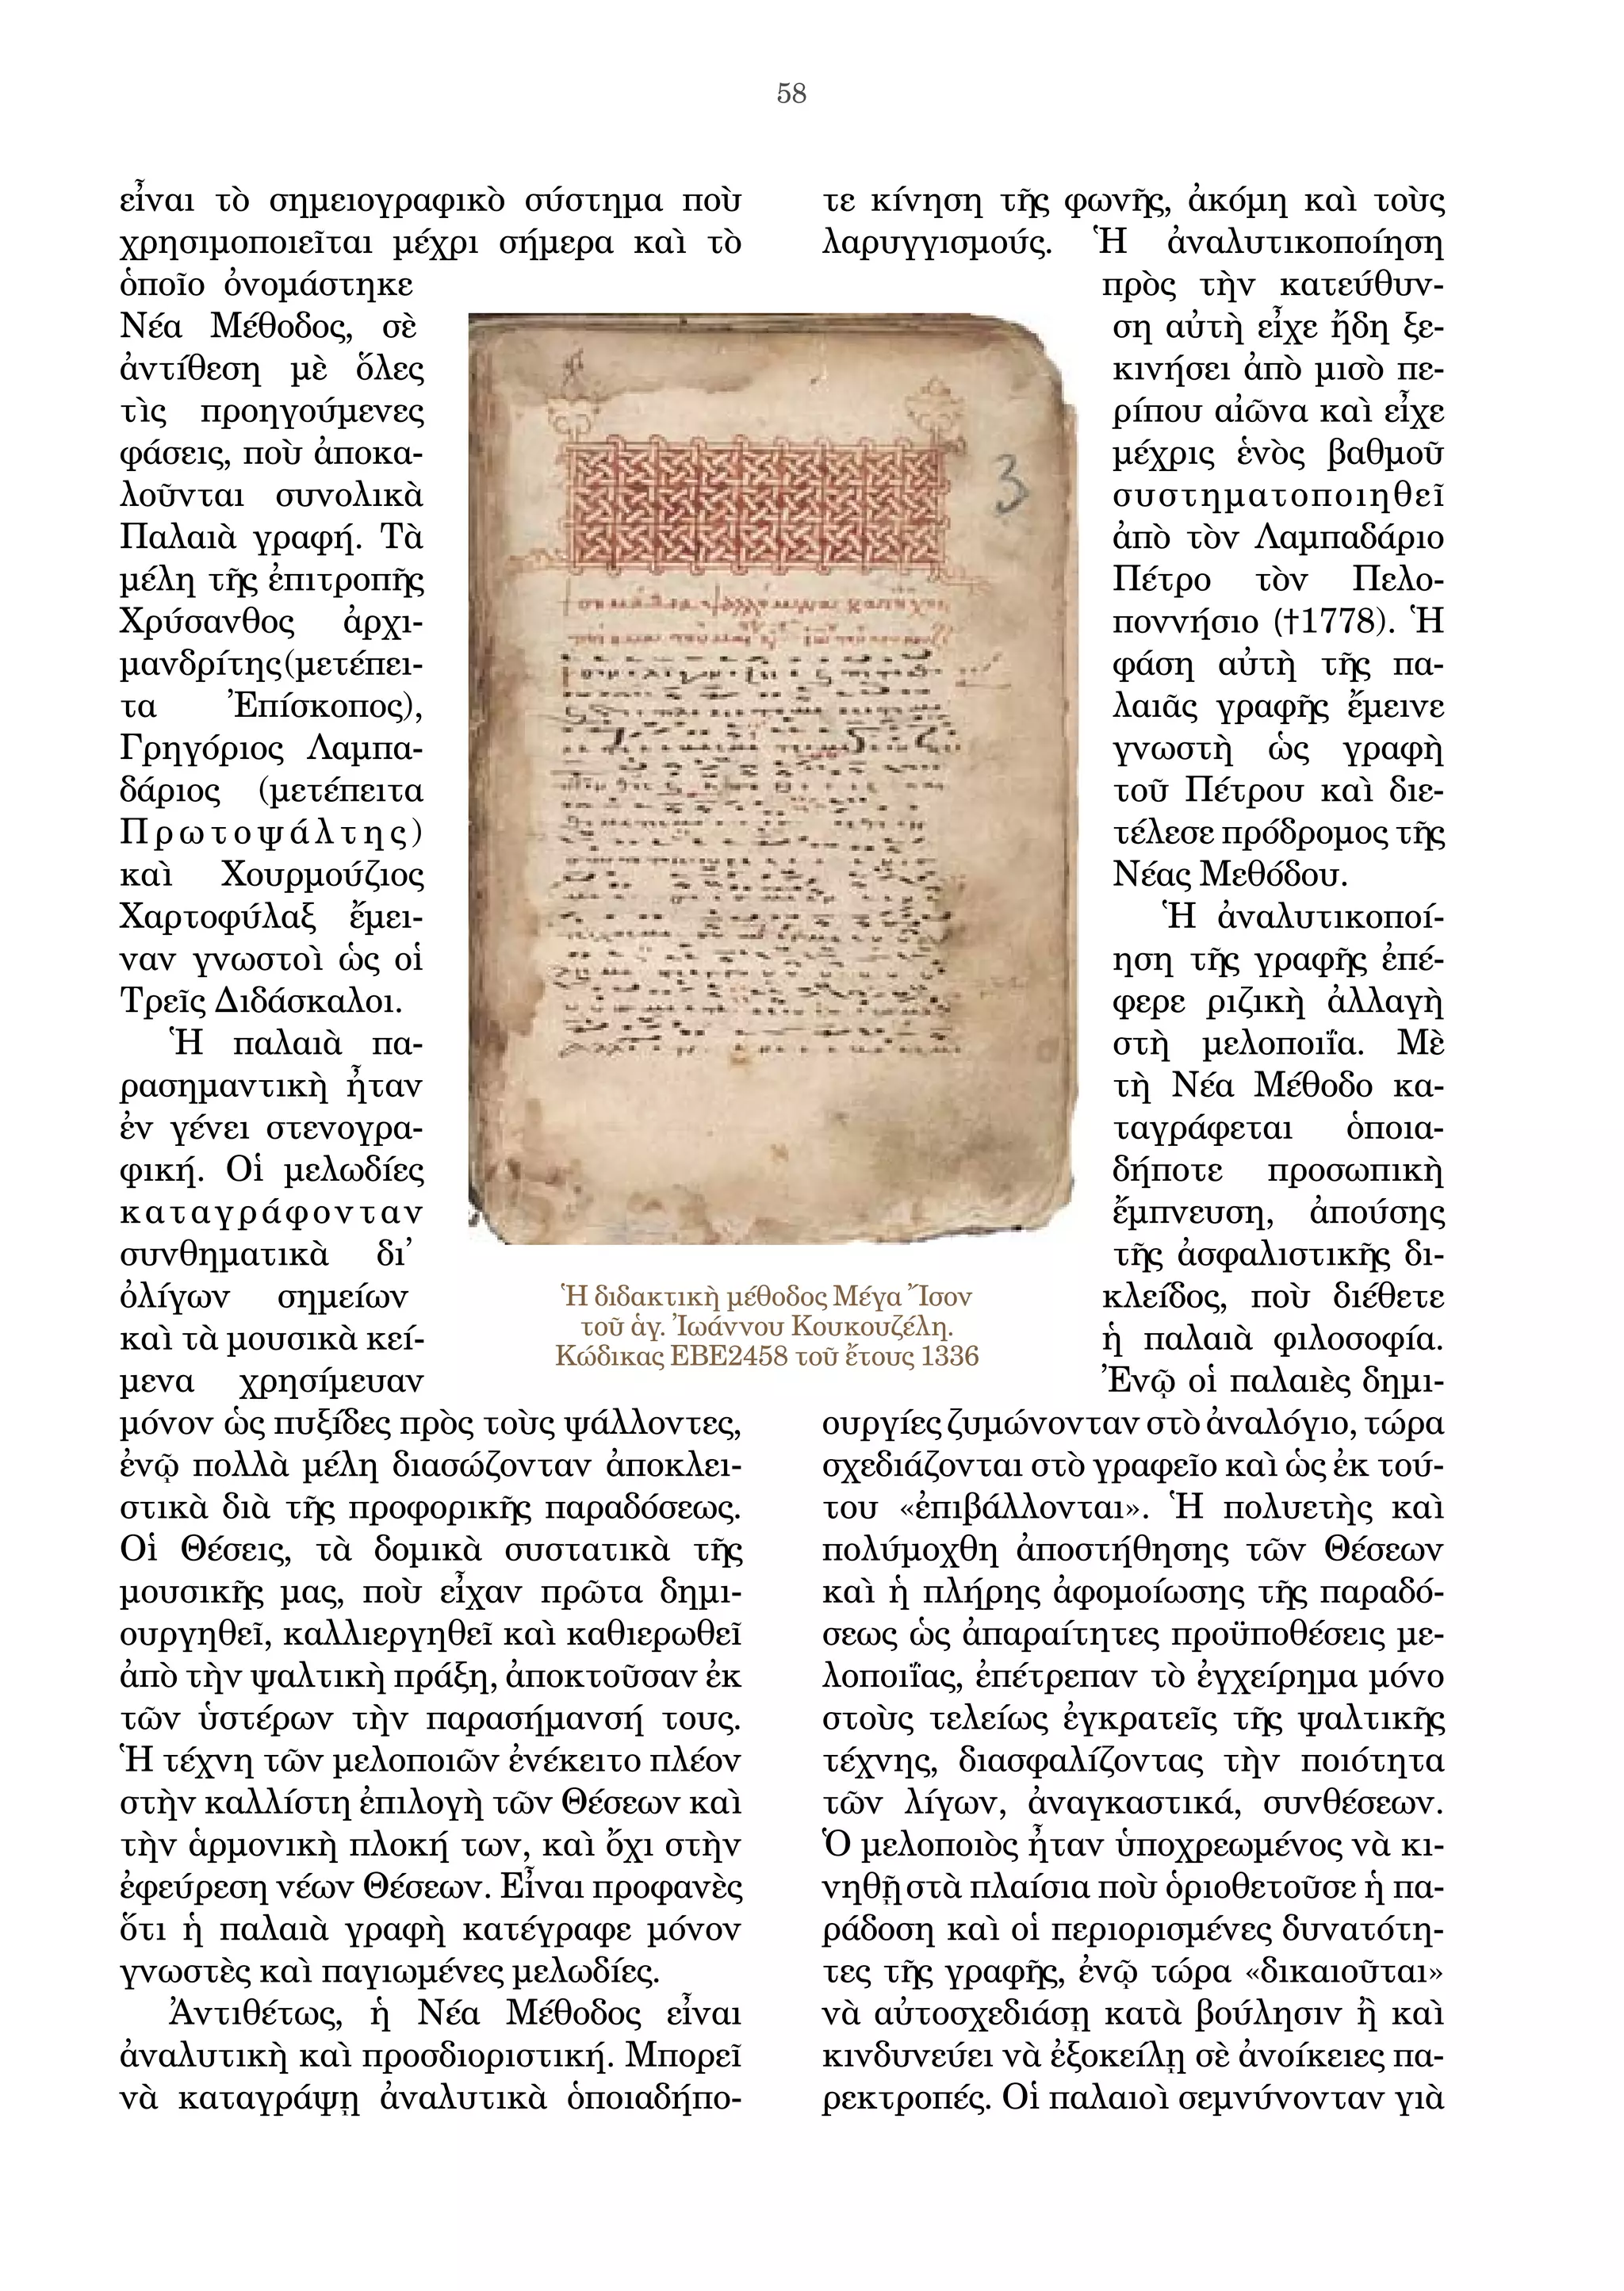 58
εἶναι τὸ σημειογραφικὸ σύστημα ποὺ
χρησιμοποιεῖται μέχρι σήμερα καὶ τὸ
ὁποῖο ὀνομάστηκε
Νέα Μέθοδος, σὲ
ἀντίθεση μὲ ὅλες
τὶς προηγούμενες
φάσεις, ποὺ ἀποκα-
λοῦνται συνολικὰ
Παλαιὰ γραφή. Τὰ
μέλη τῆς ἐπιτροπῆς
Χρύσανθος ἀρχι-
μανδρίτης(μετέπει-
τα Ἐπίσκοπος),
Γρηγόριος Λαμπα-
δάριος (μετέπειτα
Πρωτοψάλτης)
καὶ Χουρμούζιος
Χαρτοφύλαξ ἔμει-
ναν γνωστοὶ ὡς οἱ
Τρεῖς Διδάσκαλοι.
Ἡ παλαιὰ πα-
ρασημαντικὴ ἦταν
ἐν γένει στενογρα-
φική. Οἱ μελωδίες
καταγράφονταν
συνθηματικὰ δι’
ὀλίγων σημείων
καὶ τὰ μουσικὰ κεί-
μενα χρησίμευαν
μόνον ὡς πυξίδες πρὸς τοὺς ψάλλοντες,
ἐνῷ πολλὰ μέλη διασώζονταν ἀποκλει-
στικὰ διὰ τῆς προφορικῆς παραδόσεως.
Οἱ Θέσεις, τὰ δομικὰ συστατικὰ τῆς
μουσικῆς μας, ποὺ εἶχαν πρῶτα δημι-
ουργηθεῖ, καλλιεργηθεῖ καὶ καθιερωθεῖ
ἀπὸ τὴν ψαλτικὴ πράξη, ἀποκτοῦσαν ἐκ
τῶν ὑστέρων τὴν παρασήμανσή τους.
Ἡ τέχνη τῶν μελοποιῶν ἐνέκειτο πλέον
στὴν καλλίστη ἐπιλογὴ τῶν Θέσεων καὶ
τὴν ἁρμονικὴ πλοκή των, καὶ ὄχι στὴν
ἐφεύρεση νέων Θέσεων. Εἶναι προφανὲς
ὅτι ἡ παλαιὰ γραφὴ κατέγραφε μόνον
γνωστὲς καὶ παγιωμένες μελωδίες.
Ἀντιθέτως, ἡ Νέα Μέθοδος εἶναι
ἀναλυτικὴ καὶ προσδιοριστική. Μπορεῖ
νὰ καταγράψῃ ἀναλυτικὰ ὁποιαδήπο-
3
Ἡ διδακτικὴ μέθοδος Μέγα Ἴσον
τοῦ ἁγ. Ἰωάννου Κουκουζέλη.
Κώδικας ΕΒΕ2458 τοῦ ἔτους 1336
τε κίνηση τῆς φωνῆς, ἀκόμη καὶ τοὺς
λαρυγγισμούς. Ἡ ἀναλυτικοποίηση
πρὸς τὴν κατεύθυν-
ση αὐτὴ εἶχε ἤδη ξε-
κινήσει ἀπὸ μισὸ πε-
ρίπου αἰῶνα καὶ εἶχε
μέχρις ἑνὸς βαθμοῦ
συστηματοποιηθεῖ
ἀπὸ τὸν Λαμπαδάριο
Πέτρο τὸν Πελο-
ποννήσιο (†1778). Ἡ
φάση αὐτὴ τῆς πα-
λαιᾶς γραφῆς ἔμεινε
γνωστὴ ὡς γραφὴ
τοῦ Πέτρου καὶ διε-
τέλεσε πρόδρομος τῆς
Νέας Μεθόδου.
Ἡ ἀναλυτικοποί-
ηση τῆς γραφῆς ἐπέ-
φερε ριζικὴ ἀλλαγὴ
στὴ μελοποιΐα. Μὲ
τὴ Νέα Μέθοδο κα-
ταγράφεται ὁποια-
δήποτε προσωπικὴ
ἔμπνευση, ἀπούσης
τῆς ἀσφαλιστικῆς δι-
κλείδος, ποὺ διέθετε
ἡ παλαιὰ φιλοσοφία.
Ἐνῷ οἱ παλαιὲς δημι-
ουργίες ζυμώνονταν στὸ ἀναλόγιο, τώρα
σχεδιάζονται στὸ γραφεῖο καὶ ὡς ἐκ τού-
του «ἐπιβάλλονται». Ἡ πολυετὴς καὶ
πολύμοχθη ἀποστήθησης τῶν Θέσεων
καὶ ἡ πλήρης ἀφομοίωσης τῆς παραδό-
σεως ὡς ἀπαραίτητες προϋποθέσεις με-
λοποιΐας, ἐπέτρεπαν τὸ ἐγχείρημα μόνο
στοὺς τελείως ἐγκρατεῖς τῆς ψαλτικῆς
τέχνης, διασφαλίζοντας τὴν ποιότητα
τῶν λίγων, ἀναγκαστικά, συνθέσεων.
Ὁ μελοποιὸς ἦταν ὑποχρεωμένος νὰ κι-
νηθῇ στὰ πλαίσια ποὺ ὁριοθετοῦσε ἡ πα-
ράδοση καὶ οἱ περιορισμένες δυνατότη-
τες τῆς γραφῆς, ἐνῷ τώρα «δικαιοῦται»
νὰ αὐτοσχεδιάσῃ κατὰ βούλησιν ἢ καὶ
κινδυνεύει νὰ ἐξοκείλῃ σὲ ἀνοίκειες πα-
ρεκτροπές. Οἱ παλαιοὶ σεμνύνονταν γιὰ